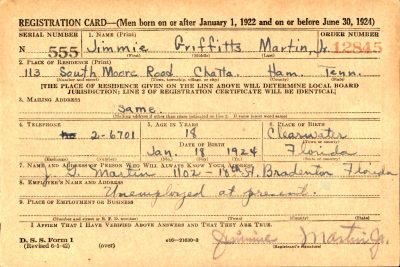 REGISTRATION CARD—(Men born on or after January 1, 1922 and on or before June 30, 1924)
SERIAL NUMBER 1. NAME (Print) ORDER NUMBER
N 555 Jimmie Griffitts Martin, Jr. 12845
(First) (Middle) (Last)
2. PLACE OF RESIDENCE (Print)
113 South Moore Road Chatta. Ham. Tenn.
(Number and street) (Town, township, village, or city) (County) (State)
[THE PLACE OF RESIDENCE GIVEN ON THE LINE ABOVE WILL DETERMINE LOCAL BOARD
JURISDICTION; LINE 2 OF REGISTRATION CERTIFICATE WILL BE IDENTICAL]
3. MAILING ADDRESS
Same.
(Mailing address if other than place indicated on line 2. If same insert word same)
4. TELEPHONE 5. AGE IN YEARS 6. PLACE OF BIRTH
2-6701 18 Clearwater
DATE OF BIRTH (Town or county)
Jan. 18 1924 Florida
(Mo.) (Day) (Yr.) (State or country)
7. NAME AND ADDRESS OF PERSON WHO WILL ALWAYS KNOW YOUR ADDRESS
J. G. Martin 1102-18th St. Bradenton Florida
8. EMPLOYER'S NAME AND ADDRESS
Unemployed at present.
9. PLACE OF EMPLOYMENT OR BUSINESS
(Number and street or R. F. D. number) (Town) (County) (State)
I AFFIRM THAT I HAVE VERIFIED ABOVE ANSWERS AND THAT THEY ARE TRUE.
D. S. S. Form 1
(Revised 6-9-41) (over) Jimmie Martin Jr.
(Registrant's signature)